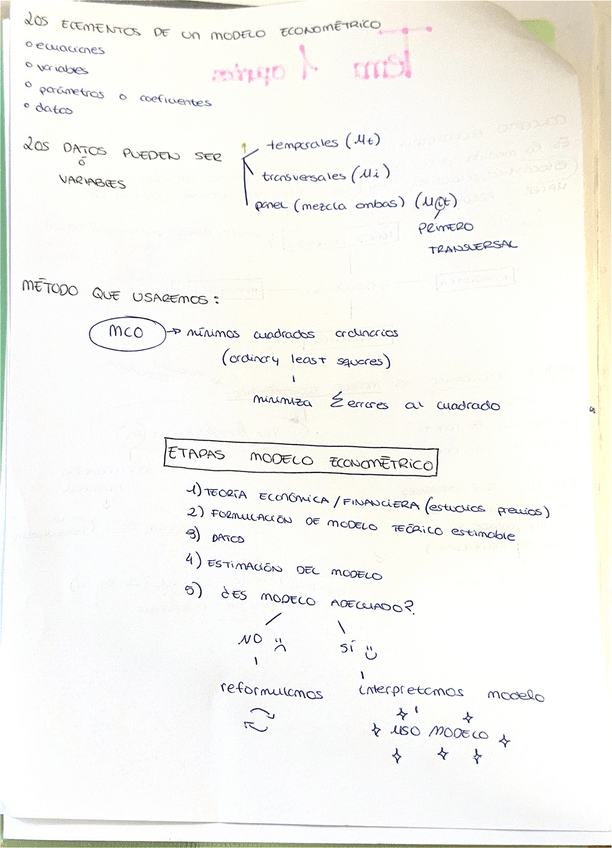 LOS ELEMENTOS DE UN MODELO ECONOMÉTRICO
o ecuaciones
o variables
o parámetros o coeficientes
o datos
LOS DATOS PUEDEN SER
Ó
VARIABLES
temporales (Mt)
transversales (Mi)
panel (mezcla ambas) (Mit)
PRIMERO
TRANSVERSAL
MÉTODO QUE USAREMOS:
MCO → mínimos cuadrados ordinarios
(ordinary least squares)
minimiza Σ errores al cuadrado
ETAPAS MODELO ECONOMÉTRICO
1) TEORÍA ECONÓMICA / FINANCIERA (estudios previos)
2) FORMULACIÓN DE MODELO TEÓRICO estimable
3) DATOS
4) ESTIMACIÓN DEL MODELO
5) ¿ES MODELO ADECUADO?
NO :( SÍ :)
reformulamos interpretamos modelo
USO MODELO